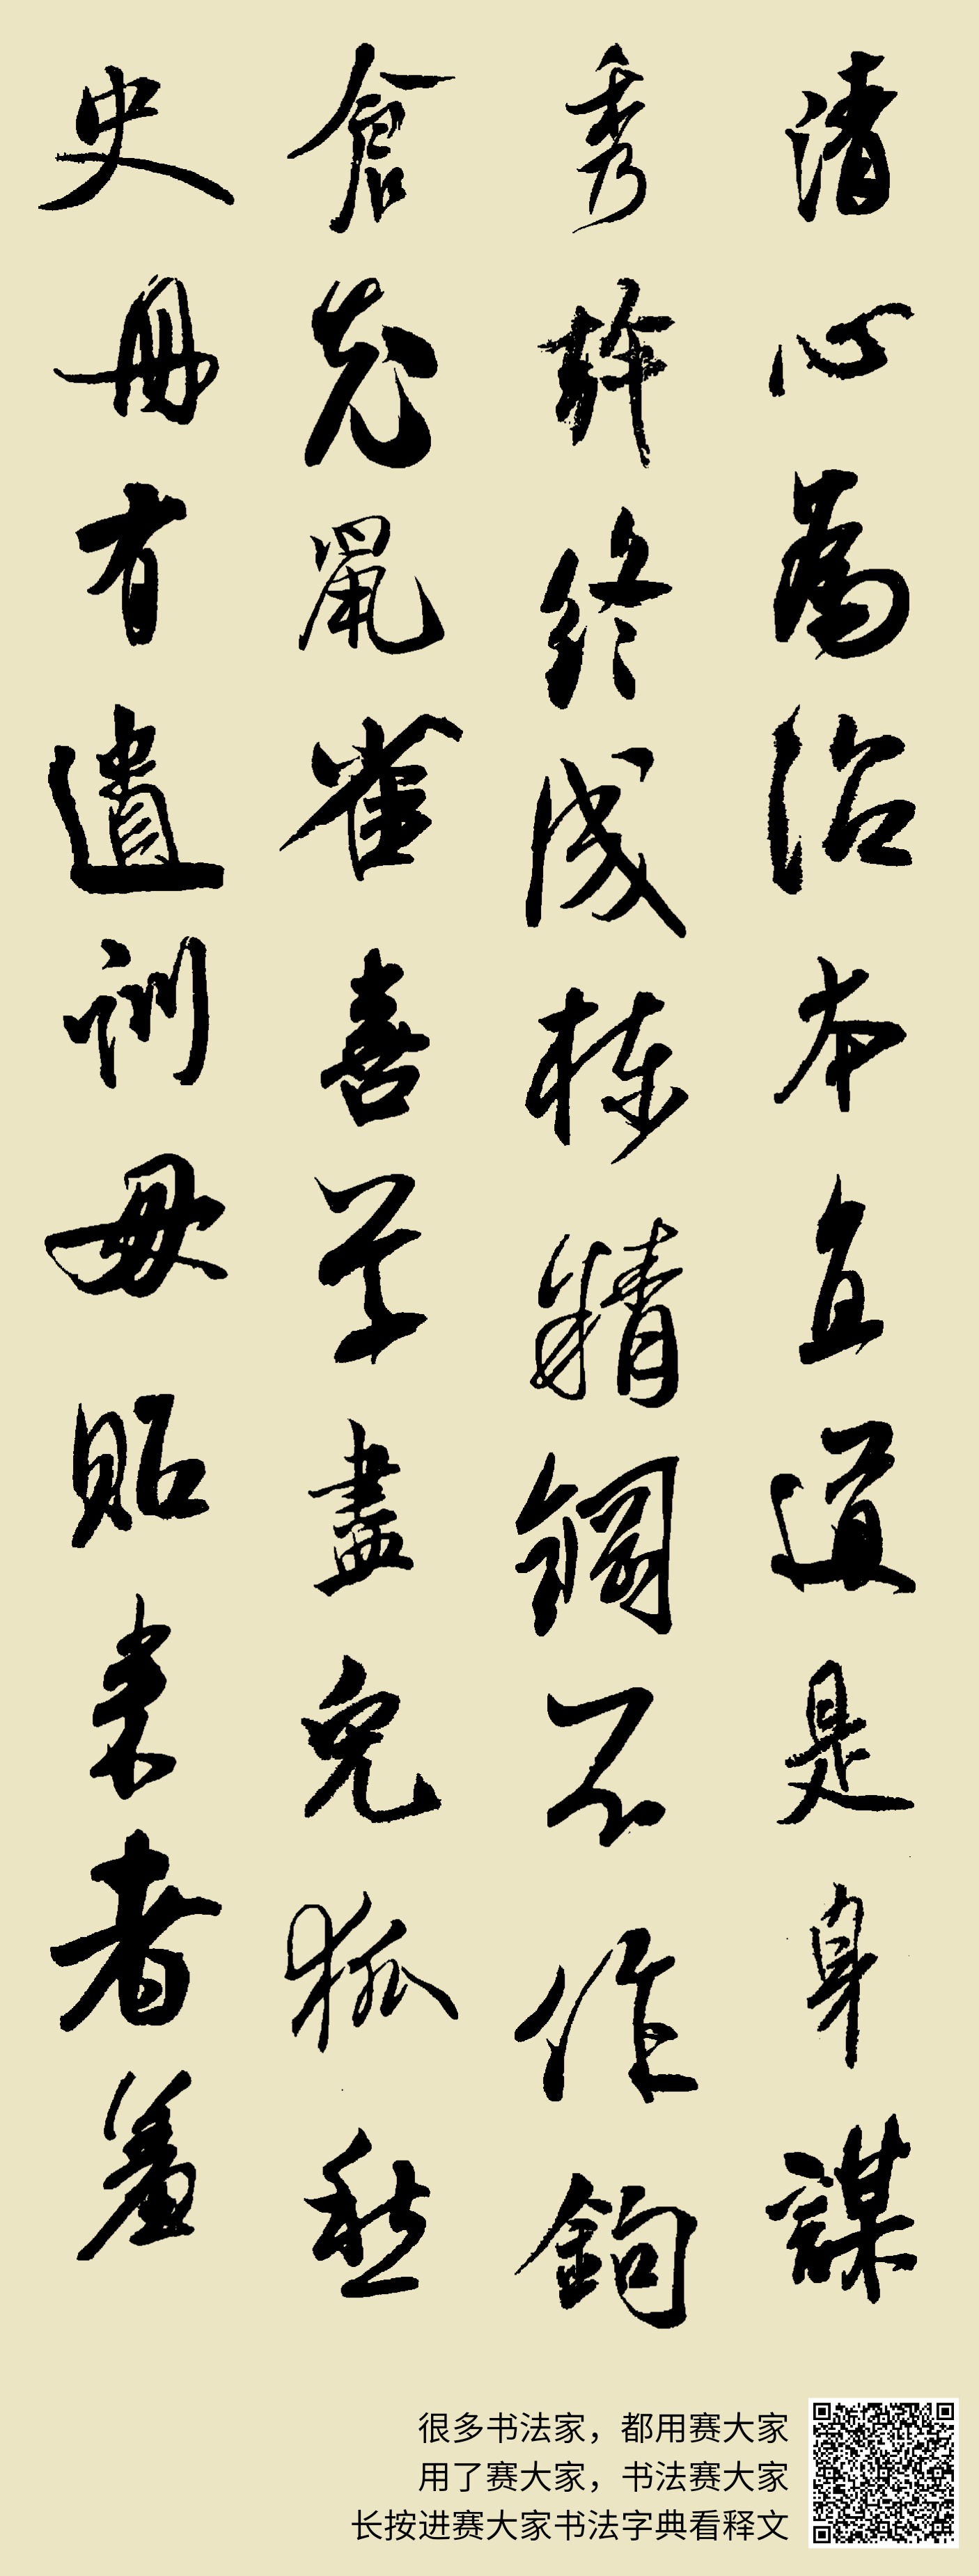 清心為治本直道是身謀
秀幹終成棟精鋼不作鉤
倉充鼠雀喜草盡兔狐愁
史冊有遺訓毋貽来者羞
很多书法家，都用赛大家
用了赛大家，书法赛大家
长按进赛大家书法字典看释文